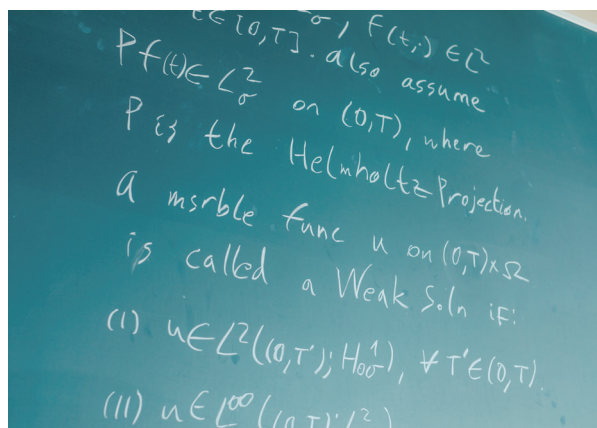 t∈[0,T]. also assume
σ, f(t,·) ∈ L²
Pf(t) ∈ L²_σ on (0,T), where
P is the Helmholtz Projection.
a msrble func u on (0,T)×Ω
is called a Weak Soln if:
(I) u∈L²((0,T');H¹₀σ), ∀ T'∈(0,T).
(II) u∈L^∞((0,T);L²)